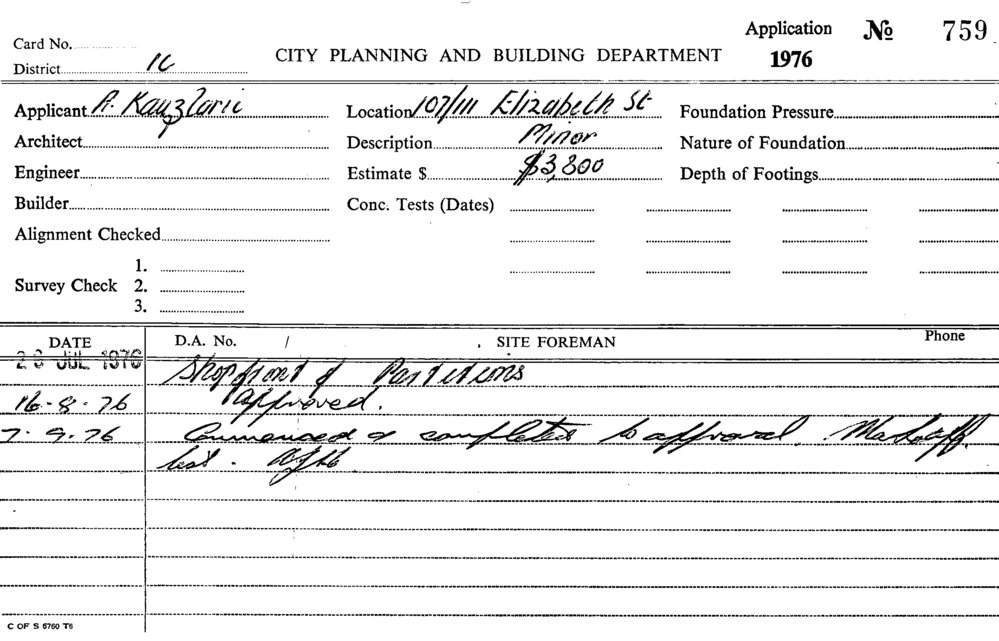 Application № 759
Card No.
CITY PLANNING AND BUILDING DEPARTMENT 1976
District 1C
Applicant A. Kauzlaric Location 107/111 Elizabeth St Foundation Pressure
Architect Description Minor Nature of Foundation
Engineer Estimate $ $3,800 Depth of Footings
Builder Conc. Tests (Dates)
Alignment Checked
1.
Survey Check 2.
3.
DATE D.A. No. / SITE FOREMAN Phone
26 JUL 1976 Shopfront & Partitions
16-8-76 Approved.
7.9.76 Commenced & completed to approval. Mark off
list.
C OF S 5760 T6